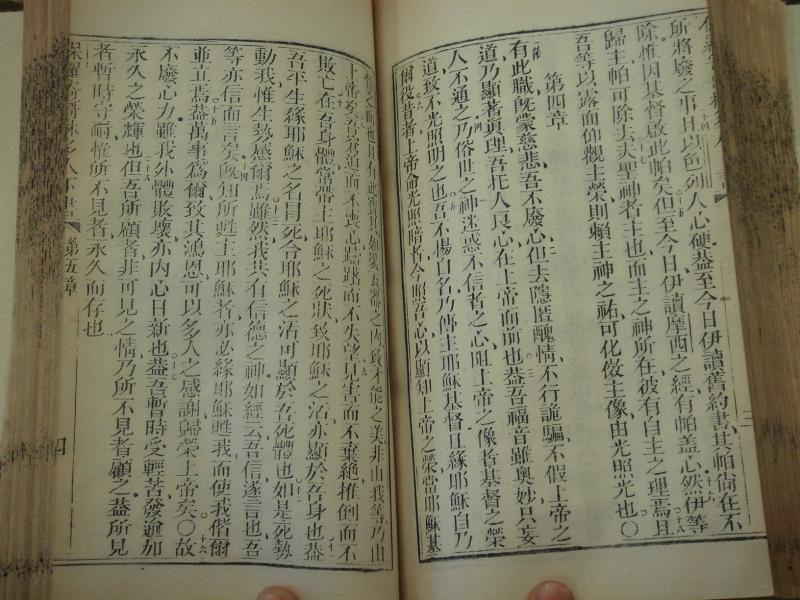 三
所將廢之事且以色列人心硬蓋至今日伊讀舊約書其帕尚在不
除惟因基督啟此帕矣但至今日伊讀摩西之經有帕蓋心然伊等
歸主帕可除去夫聖神者主也而主之神所在彼有自主之理焉且
吾等以露面仰觀主榮則賴主神之祐可化傚主像由光照光也〇
第四章
有此職既蒙慈悲吾不廢心但去隱匿醜情不行詭騙不假上帝之
道乃顯著真理吾托人良心在上帝面前也蓋吾福音雖奧妙只妄
人不通之乃俗世之神迷惑不信者之心阻上帝之像者基督之榮
道致不光照明之也吾不揚自名乃傳主耶穌基督且緣耶穌自乃
爾役昔者上帝命光照暗者今照吾心以顯知上帝之榮當耶穌基
也且有此寶貝如裝瓦器之內致不能之美非由我等乃由
上帝矣吾迫而不喪心躊躇而不失望見害而不棄絕推倒而不
敗亡在吾身體常帶主耶穌之死狀致耶穌之活亦顯於吾身也蓋
吾平生緣耶穌之名目死合耶穌之活可顯於吾死體也如是死勢
動我惟生勢感爾焉雖然我共有信德之神如經云吾信遂言也吾
等亦信而言矣既知所甦主耶穌者亦必緣耶穌甦我而使我偕爾
並立焉蓋萬事為爾致其鴻恩可以多人之感謝歸榮上帝矣〇故
不廢心力雖我外體敗壞亦內心日新也蓋吾暫時受輕苦發逾加
永久之榮輝也但吾所顧者非可見之情乃所不見者顧之蓋所見
者暫時守耐惟所不見者永久而存也
保羅寄哥林多人下書 第五章 四